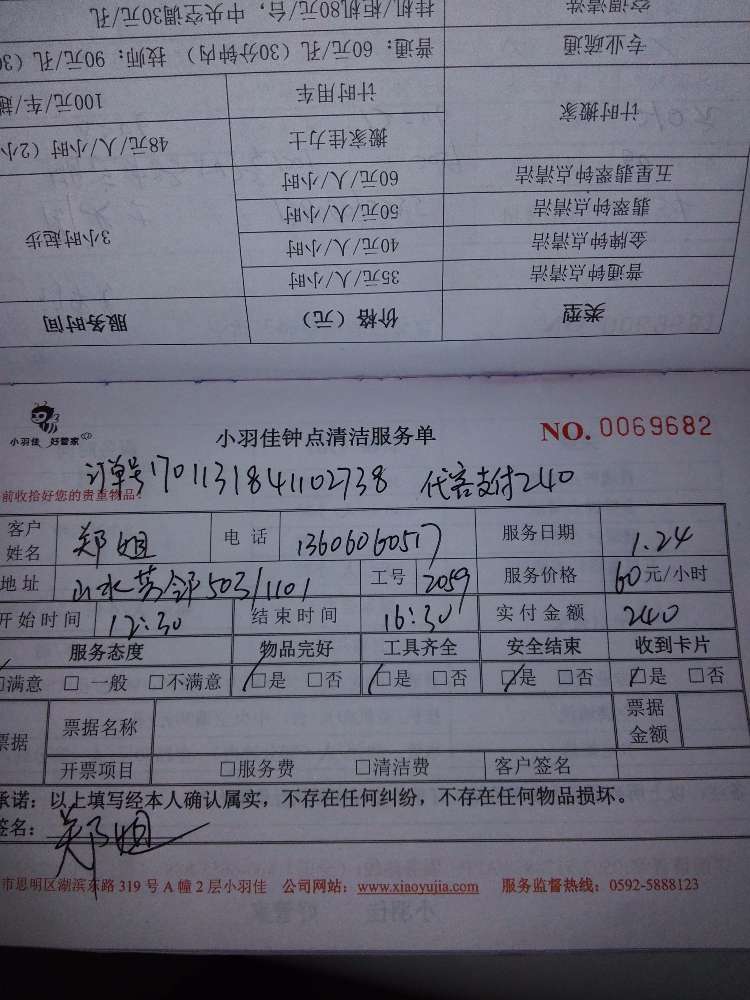 挂机/柜机80元/台，中央空调30元/孔
空调清洗
专业疏通 普通：60元/孔（30分钟内） 技师：90元/孔（30
计时搬家
计时用车 100元/车/趟
搬家佳力士 48元/人/小时（2小
五星翡翠钟点清洁 60元/人/小时
翡翠钟点清洁 50元/人/小时
3小时起步
金牌钟点清洁 40元/人/小时
普通钟点清洁 35元/人/小时
类型 价格（元） 服务时间
小羽佳 好管家
小羽佳钟点清洁服务单
NO. 0069682
订单号1701131841102738 代客支付240
前收拾好您的贵重物品。
客户姓名 郑姐 电话 13606060517 服务日期 1.24
地址 山水芳邻503/1101 工号 2059 服务价格 60元/小时
开始时间 12:30 结束时间 16:30 实付金额 240
服务态度 物品完好 工具齐全 安全结束 收到卡片
□满意 □一般 □不满意 □是 □否 □是 □否 □是 □否 □是 □否
票据 票据名称 票据金额
开票项目 □服务费 □清洁费 客户签名
承诺：以上填写经本人确认属实，不存在任何纠纷，不存在任何物品损坏。
签名：郑姐
市思明区湖滨东路 319 号 A 幢 2 层小羽佳 公司网站：www.xiaoyujia.com 服务监督热线：0592-5888123